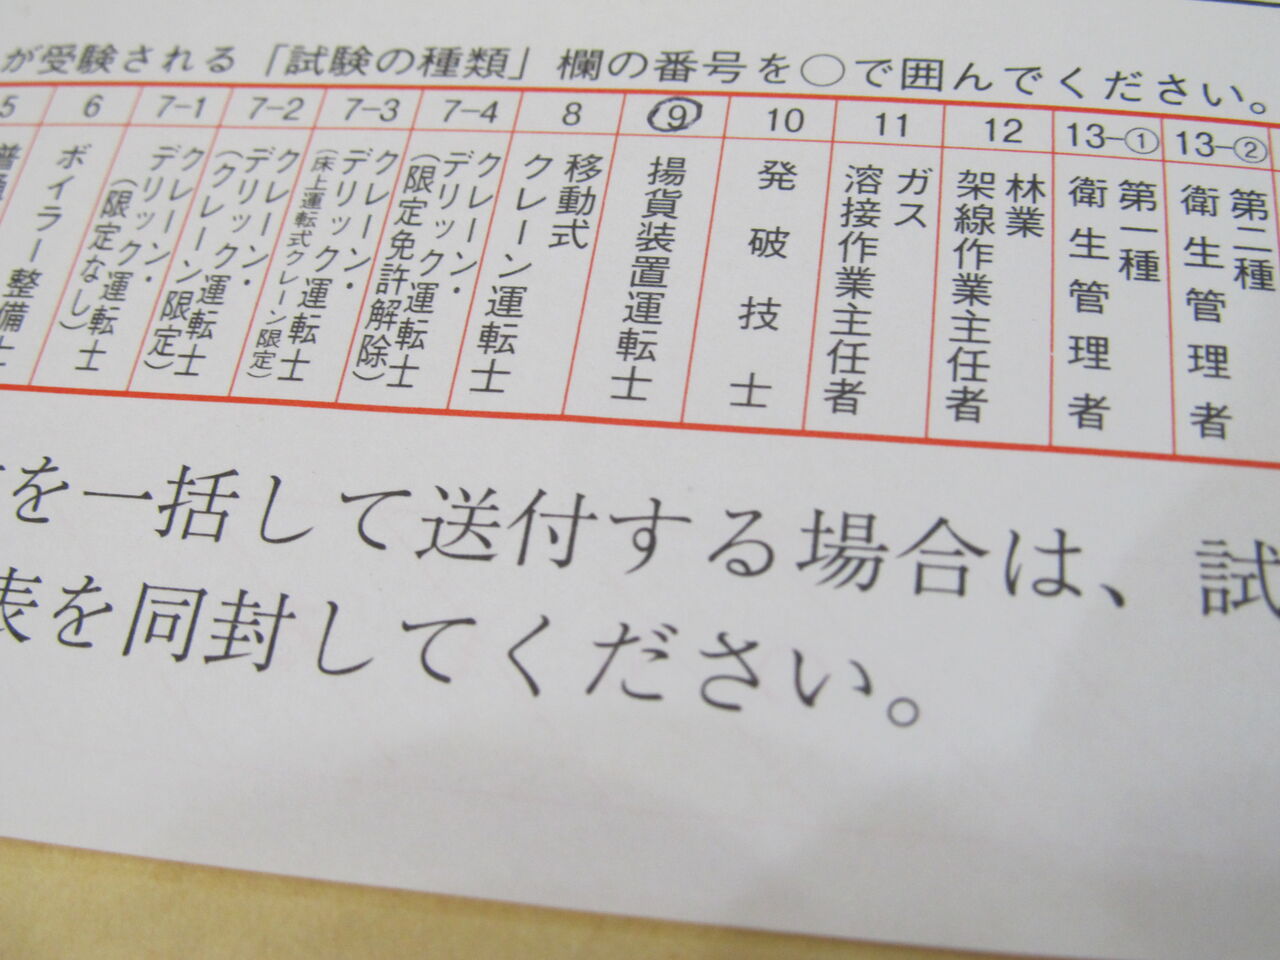 が受験される「試験の種類」欄の番号を○で囲んでください。
5 6 7-1 7-2 7-3 7-4 8 9 10 11 12 13-① 13-②
ボイラー整備士
クレーン・
デリック運転士
(限定なし)
クレーン・
デリック運転士
(クレーン限定)
クレーン・
デリック運転士
(床上運転式クレーン限定)
クレーン・
デリック運転士
(限定免許解除)
移動式
クレーン運転士
揚貨装置運転士
発破技士
ガス
溶接作業主任者
林業
架線作業主任者
第一種
衛生管理者
第二種
衛生管理者
を一括して送付する場合は、試
表を同封してください。